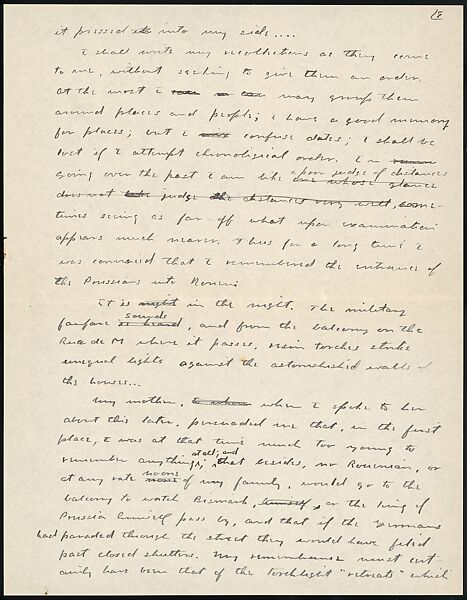 18
it pressed into my side....
I shall write my recollections as they come
to me, without seeking to give them an order.
At the most I can may group them
around places and people; I have a good memory
for places; but I confuse dates; I shall be
lost if I attempt chronological order. In
a poor judge of distances
going over the past I am like one whose glance
does not judge the distances very well, some-
times seeing as far-off what upon examination
appears much nearer. Thus for a long time I
was convinced that I remembered the entrance of
the Prussians into Rouen:
It is night in the night. The military
sounds
fanfare is heard, and from the balcony on the
Rue de M where it passes, resin torches strike
unequal lights against the astonished walls of
the houses...
My mother, to whom when I spoke to her
about this later, persuaded me that, in the first
place, I was at that time much too young to
at all; and
remember anything; that besides, no Rouenian, or
no one
at any rate of my family, would go to the
balcony to watch Bismark, himself, or the king of
Prussia himself pass by, and that if the Germans
had paraded through the street they would have filed
past closed shutters. My remembrance must cert-
ainly have been that of the torchlight "retreats" which